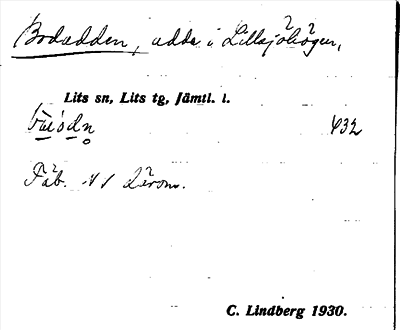 Bodudden, udde i Lillsjöhögen,
Lits sn, Lits tg, Jämtl. l.
432
Fäb. 41 därom.
C. Lindberg 1930.